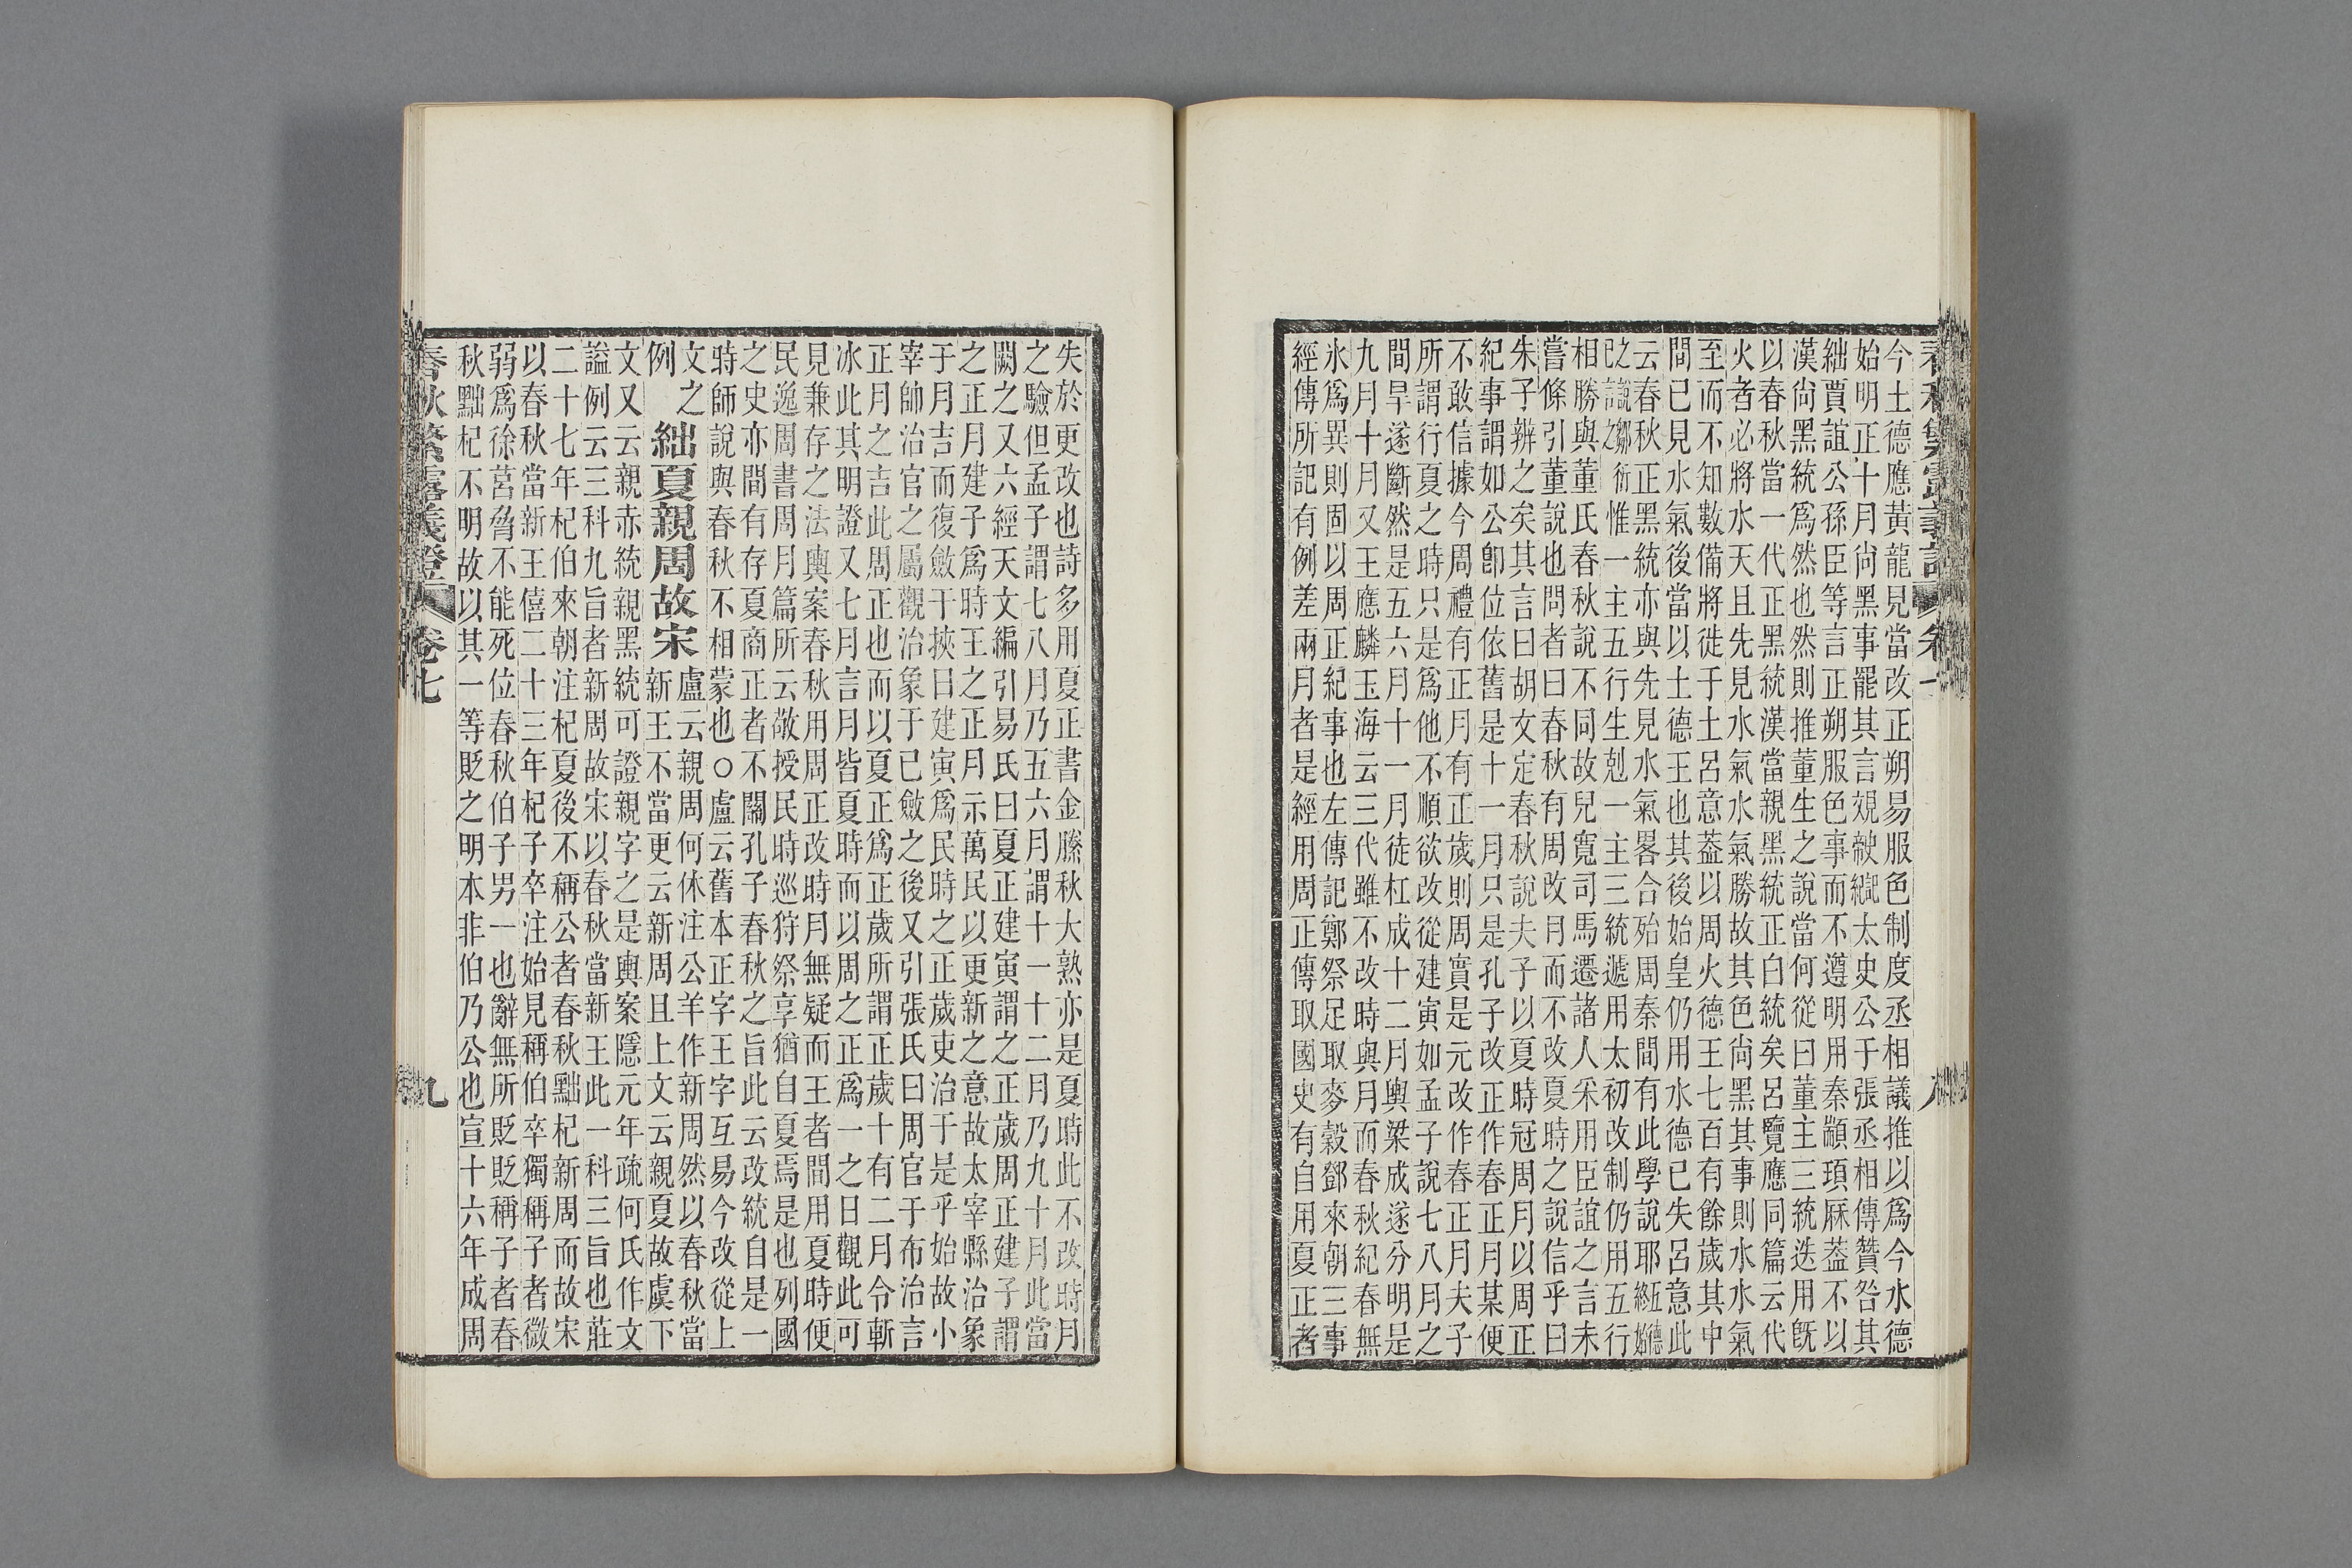 春秋繁露義證 卷七 八
今土德應黃龍見當改正朔易服色制度丞相議推以爲今水德
始明正十月尚黑事罷其言太史公于張丞相傳贊咎其
絀賈誼公孫臣等言正朔服色事而不遵明用秦顓頊厤葢不以
漢尚黑統爲然也然則推董生之說當何從曰董主三統迭用旣
以春秋當一代正黑統漢當親黑統正白統矣呂覽應同篇云代
火者必將水天且先見水氣水氣勝故其色尚黑其事則水水氣
至而不知數備將徙于土呂意葢以周火德王七百有餘歲其中
間已見水氣後當以土德王也其後始皇仍用水德已失呂意此
云春秋正黑統亦與先見水氣畧合殆周秦間有此學說耶五德終始
之說鄒衍已言之惟一主五行生剋一主三統遞用太初改制仍用五行
相勝與董氏春秋說不同故兒寬司馬遷諸人采用臣誼之言未
嘗條引董說也問者曰春秋有周改月而不改夏時之說信乎曰
朱子辨之矣其言曰胡文定春秋說夫子以夏時冠周月以周正
紀事謂如公卽位依舊是十一月只是孔子改正作春正月某便
不敢信據今周禮有正月有正歲則周實是元改作春正月夫子
所謂行夏之時只是爲他不順欲改從建寅如孟子說七八月之
間旱遂斷然是五六月十一月徒杠成十二月輿梁成遂分明是
九月十月又王應麟玉海云三代雖不改時與月而春秋紀春無
氷爲異則固以周正紀事也左傳記鄭祭足取麥穀鄧來朝三事
經傳所記有例差兩月者是經用周正傳取國史有自用夏正者
失於更改也詩多用夏正書金縢秋大熟亦是夏時此不改時月
之驗但孟子謂七八月乃五六月謂十一十二月乃九十月此當
闕之又六經天文編引易氏曰夏正建寅謂之正歲周正建子謂
之正月建子爲時王之正月示萬民以更新之意故太宰縣治象
于月吉而復斂于挾日建寅爲民時之正歲吏治于是乎始故小
宰帥治官之屬觀治象于已斂之後又引張氏曰周官于布治言
正月之吉此周正也而以夏正爲正歲所謂正歲十有二月令斬
冰此其明證又七月言月皆夏時而以周之正爲一之日觀此可
見兼存之法輿案春秋用周正改時月無疑而王者間用夏時便
民逸周書周月篇所云敬授民時巡狩祭享猶自夏焉是也列國
之史亦間有存夏商正者不關孔子春秋之旨此云改統自是一
時師說與春秋不相蒙也○盧云舊本正字王字互易今改從上
文之
例
絀夏親周故宋
盧云親周何休注公羊作新周然以春秋當
新王不當更云新周且上文云親夏故虞下
文又云親赤統親黑統可證親字之是輿案隱元年疏何氏作文
謚例云三科九旨者新周故宋以春秋當新王此一科三旨也莊
二十七年杞伯來朝注杞夏後不稱公者春秋黜杞新周而故宋
以春秋當新王僖二十三年杞子卒注始見稱伯卒獨稱子者微
弱爲徐莒脅不能死位春秋伯子男一也辭無所貶貶稱子者春
秋黜杞不明故以其一等貶之明本非伯乃公也宣十六年成周
春秋繁露義證 卷七 九